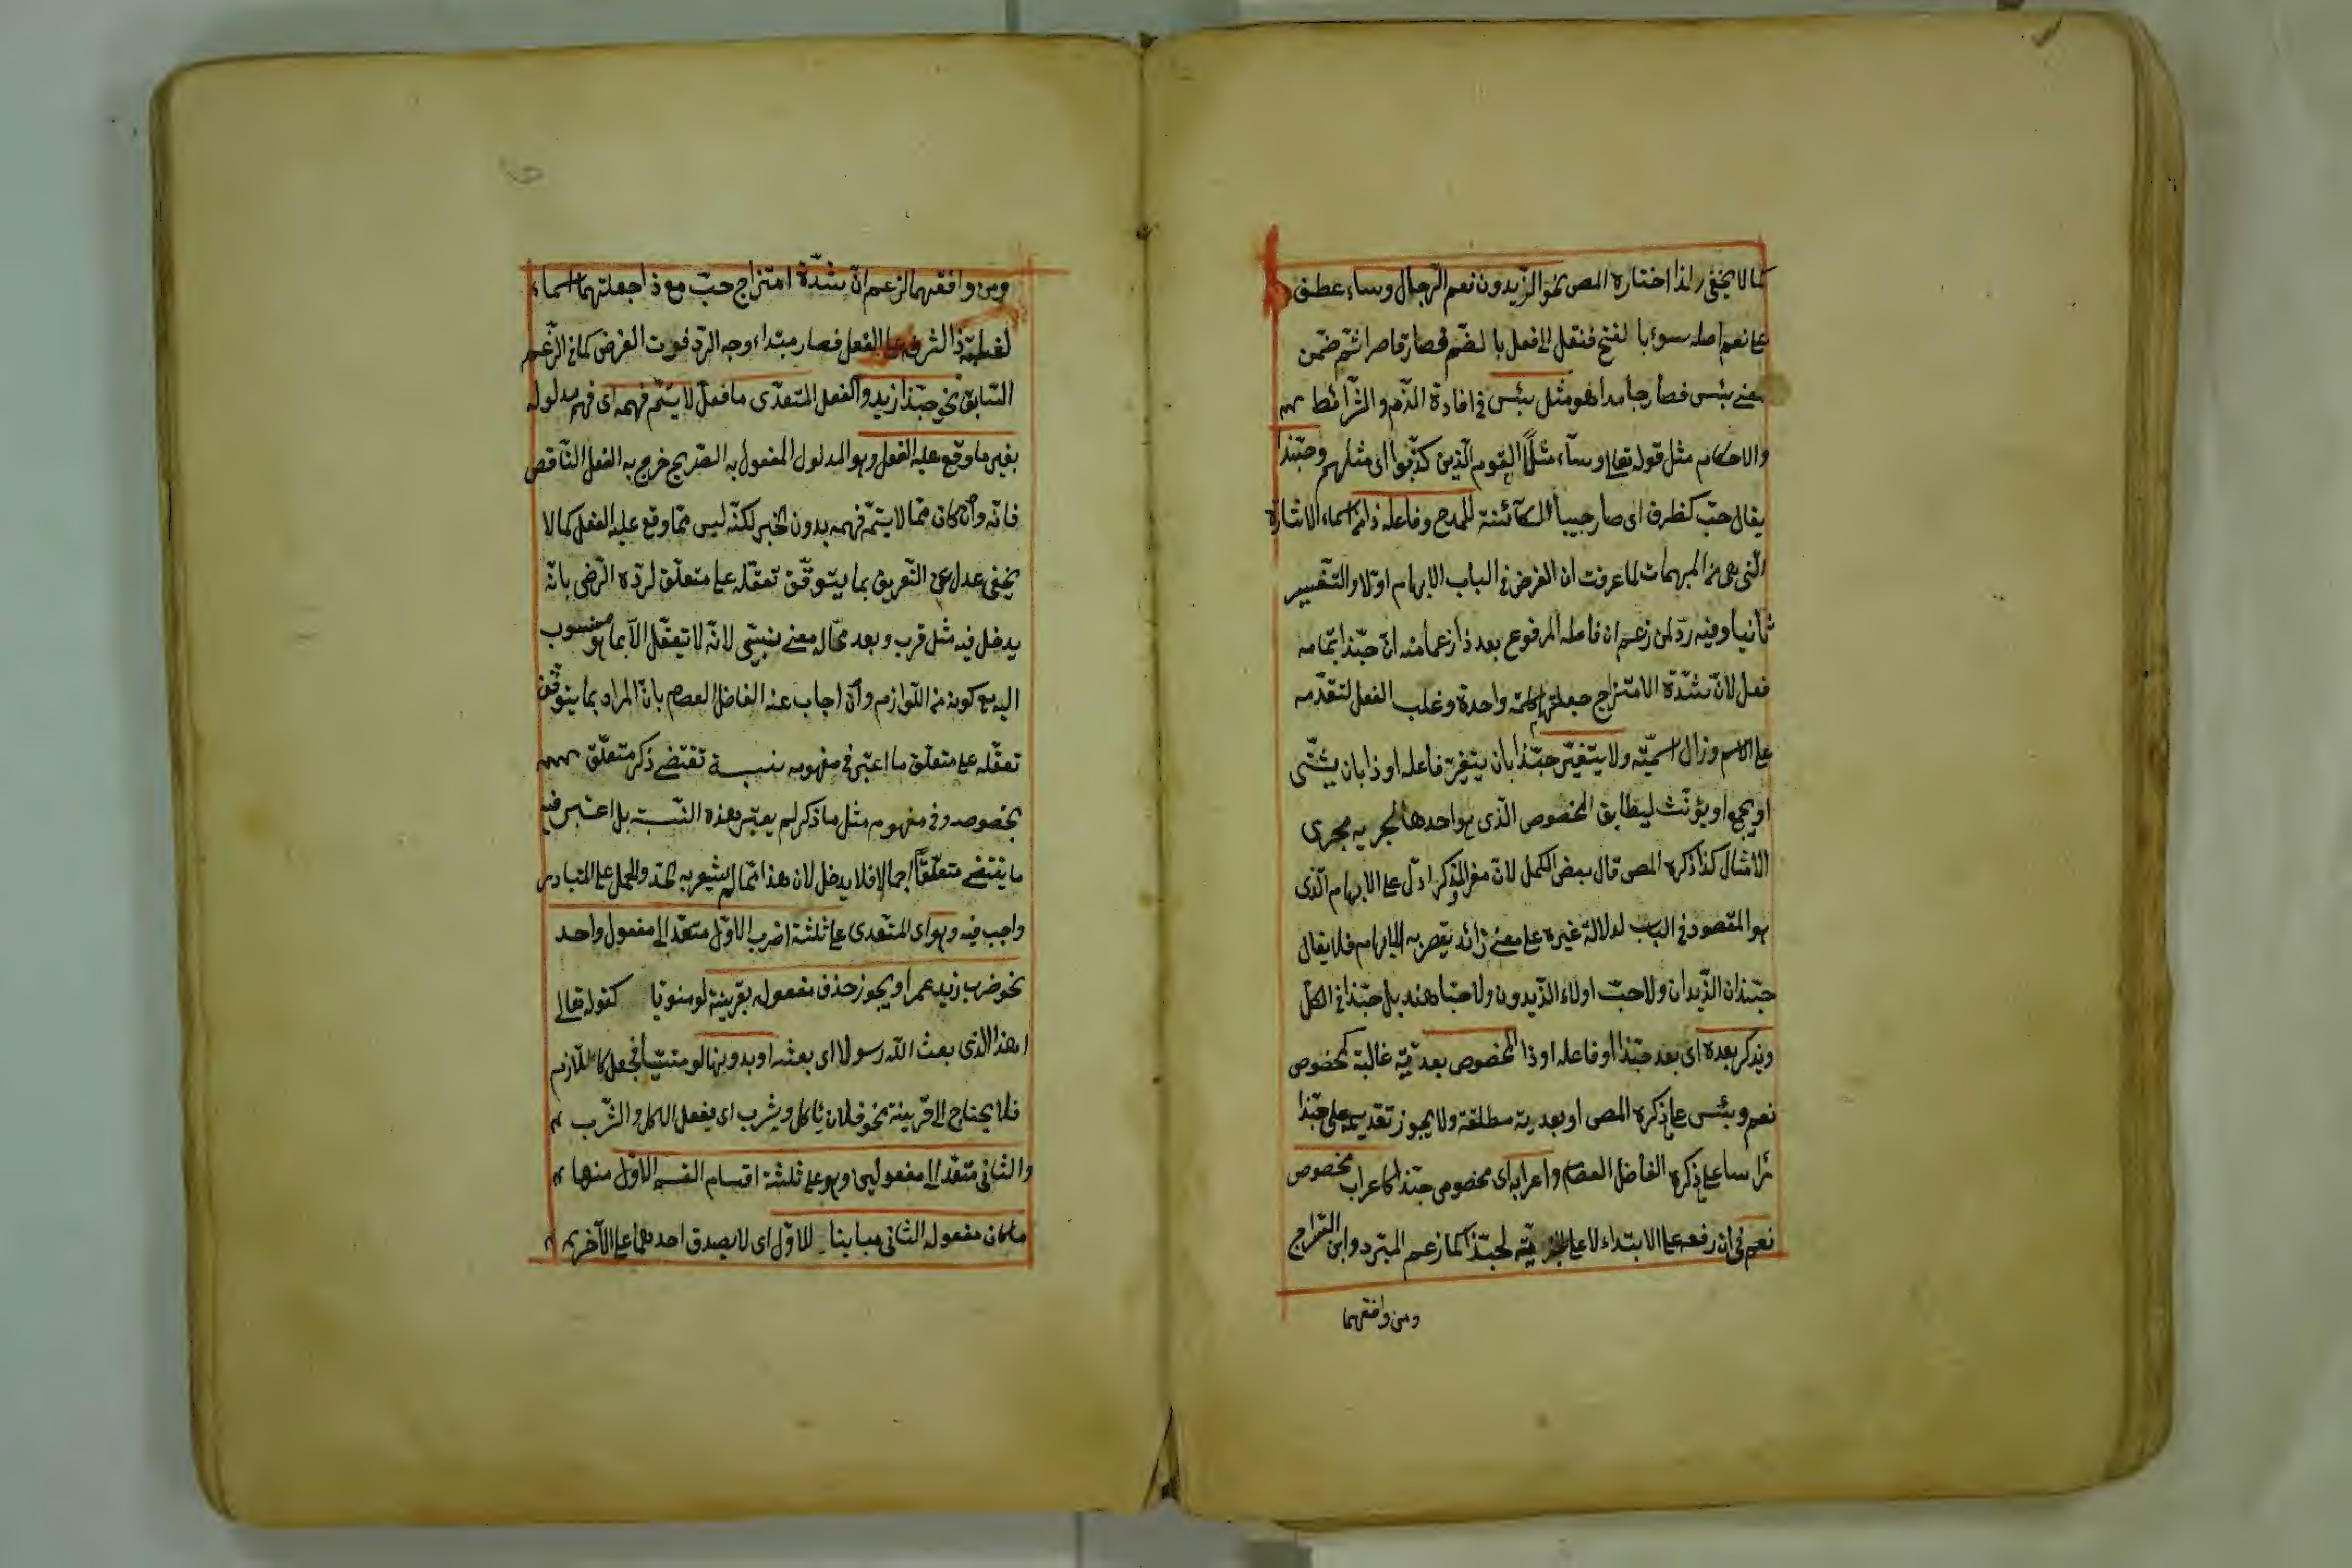 كما لا يخفى ولذا اختاره المص نحو الزيدون نعم الرجال وساء عطف
على نعم اصله سوء بالفتح فنقل الى فعل بالضم فصار قاصرا ثم ضمن
معنى بئس فصار جامدا هو مثل بئس في افادة الذم والشرائط
والاحكام مثل قوله تعالى وساء مثلا القوم الذين كذبوا اى مثلهم وحبذا
يقال حب كظرف اى صار حبيبا الكائنة للمدح وفاعله ذا من اسماء الاشارة
التى هى من المبهمات لما عرفت ان الغرض في الباب الابهام اولا والتفسير
ثانيا وفيه رد لمن زعم ان فاعله المرفوع بعد ذا زعما منه ان حبذا بتمامه
فعل لان شدة الامتزاج جعلتهما كلمة واحدة وغلب الفعل لتقدمه
على الاسم وزال اسميته ولا يتغير حبذا بان يتغير فاعله او ذا بان يثنى
او يجمع او يؤنث ليطابق المخصوص الذى هو احدها لجريه مجرى
الامثال كذا ذكره المص قال بعض الكمل لان مفرد المذكر ادل على الابهام الذى
هو المقصود في الباب لدلالة غيره على معنى زائد يقصر به الابهام فلا يقال
حبذان الزيدان ولا حب اولاء الزيدون ولا حبتا هند بل حبذا في الكل
ويذكر بعده اى بعد حبذا او فاعله او ذا المخصوص بعدية غالبة كمخصوص
نعم وبئس على ما ذكره المص او بعدية مطلقة ولا يجوز تقديمه على حبذا
رأسا على ما ذكره الفاضل العصام واعرابه اى مخصوص حبذا كاعراب مخصوص
نعم في ان رفعه على الابتداء لا على الخبرية لحبذا كما زعم المبرد وابن السراج
ومن وافقهما
ومن وافقهما لزعم ان شدة امتزاج حب مع ذا جعلتهما اسما
لغلبة ذا الشرفه على الفعل فصار مبتداء وجه الرد فوت الغرض كما في الزعم
السابق نحو حبذا زيد والفعل المتعدى ما فعل لا يتم فهمه اى فهم مدلوله
بغير ما وقع عليه الفعل وهو المدلول المفعول به الصريح خرج به الفعل الناقص
فانه وان كان مما لا يتم فهمه بدون الخبر لكنه ليس مما وقع عليه الفعل كما لا
يخفى عدل عن التعريف بما يتوقف تعقله على متعلق لرده الرضى بانه
يدخل فيه مثل قرب وبعد مما له معنى نسبى لانه لا تعقل الا بما هو منسوب
اليه مع كونه من اللوازم وان اجاب عنه الفاضل العصام بان المراد بما يتوقف
تعقله على متعلق ما اعتبر في مفهومه نسبة تقتضى ذكر متعلق
بخصوصه وفى مفهوم مثل ما ذكر لم يعتبر هذه النسبة بل اعتبر فيه
ما يقتضى متعلقا اجمالا فلا يدخل لان هذا مما لم يشعر به الحد والحمل على المتبادر
واجب فيه وهو اى المتعدى على ثلثة اضرب الاول متعد الى مفعول واحد
نحو ضرب زيد عمرا ويجوز حذف مفعوله بقرينة لو منويا كقوله تعالى
اهذا الذى بعث الله رسولا اى بعثه او بدونها لو منسيا فجعل كاللازم
فلا يحتاج الى قرينة نحو فلان يأكل ويشرب اى يفعل الاكل والشرب
والثانى متعد الى مفعولين وهو على ثلثة اقسام القسم الاول منها
ما كان مفعوله الثانى مباينا للاول اى لا يصدق احدهما على الآخر